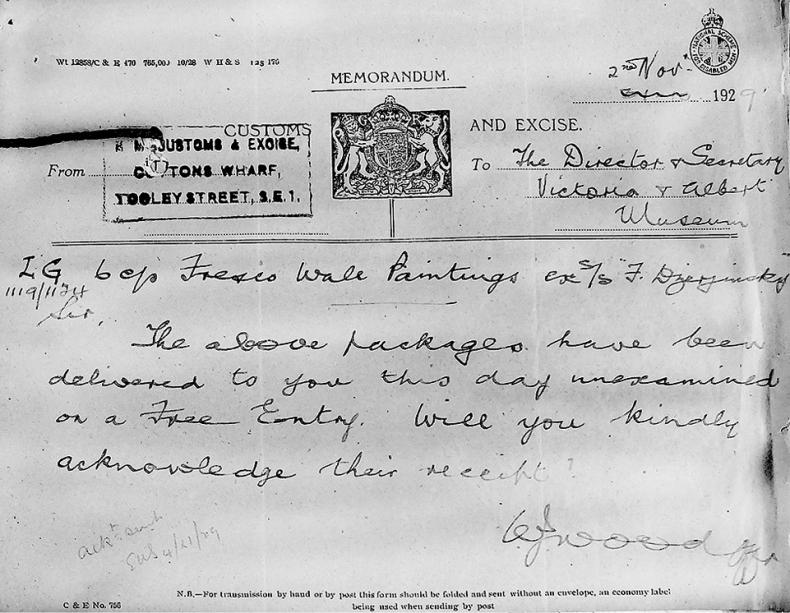 Wt 12858/C & E 470 765,000 10/28 W H & S 125 176
NATIONAL SCHEME FOR DISABLED MEN
MEMORANDUM.
2nd Nov. 1929
CUSTOMS AND EXCISE.
From H M CUSTOMS & EXCISE,
COTTONS WHARF,
TOOLEY STREET, S.E.1.
To The Director & Secretary
Victoria & Albert
Museum
IG 6 c/s Fresco Wall Paintings ex s/s "F. Dzerjinsky"
1119/1124
Sir,
The above packages have been
delivered to you this day unexamined
on a Free Entry. Will you kindly
acknowledge their receipt?
Wood
ackt. sent
4/11/29
N.B.—For transmission by hand or by post this form should be folded and sent without an envelope, an economy label
being used when sending by post
C & E No. 756